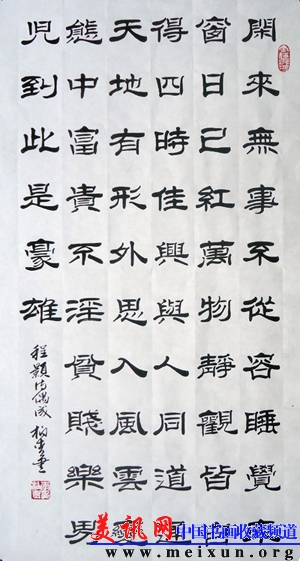 閑來無事不從容睡覺東
窗日已紅萬物靜觀皆自
得四時佳興與人同道通
天地有形外思入風雲變
態中富貴不淫貧賤樂男
児到此是豪雄
程顥诗偶成
美讯网 中国书画收藏频道
www.meixun.org